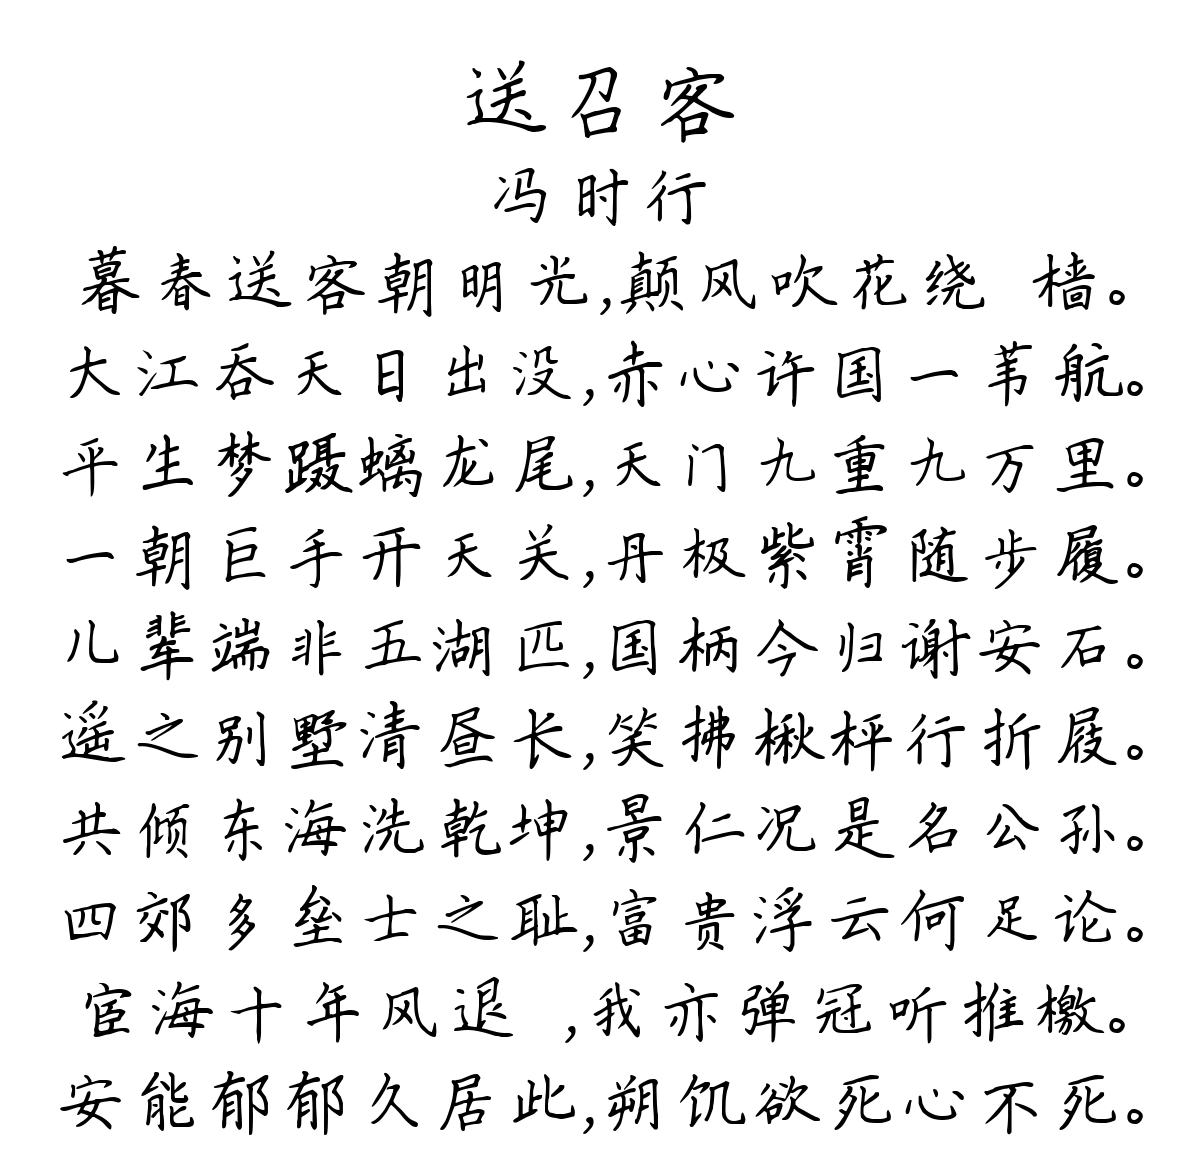 送召客
冯时行
暮春送客朝明光,颠风吹花绕 樯。
大江吞天日出没,赤心许国一苇航。
平生梦蹑螭龙尾,天门九重九万里。
一朝巨手开天关,丹极紫霄随步履。
儿辈端非五湖匹,国柄今归谢安石。
遥之别墅清昼长,笑拂楸枰行折屐。
共倾东海洗乾坤,景仁况是名公孙。
四郊多垒士之耻,富贵浮云何足论。
宦海十年风退 ,我亦弹冠听推檄。
安能郁郁久居此,朔饥欲死心不死。